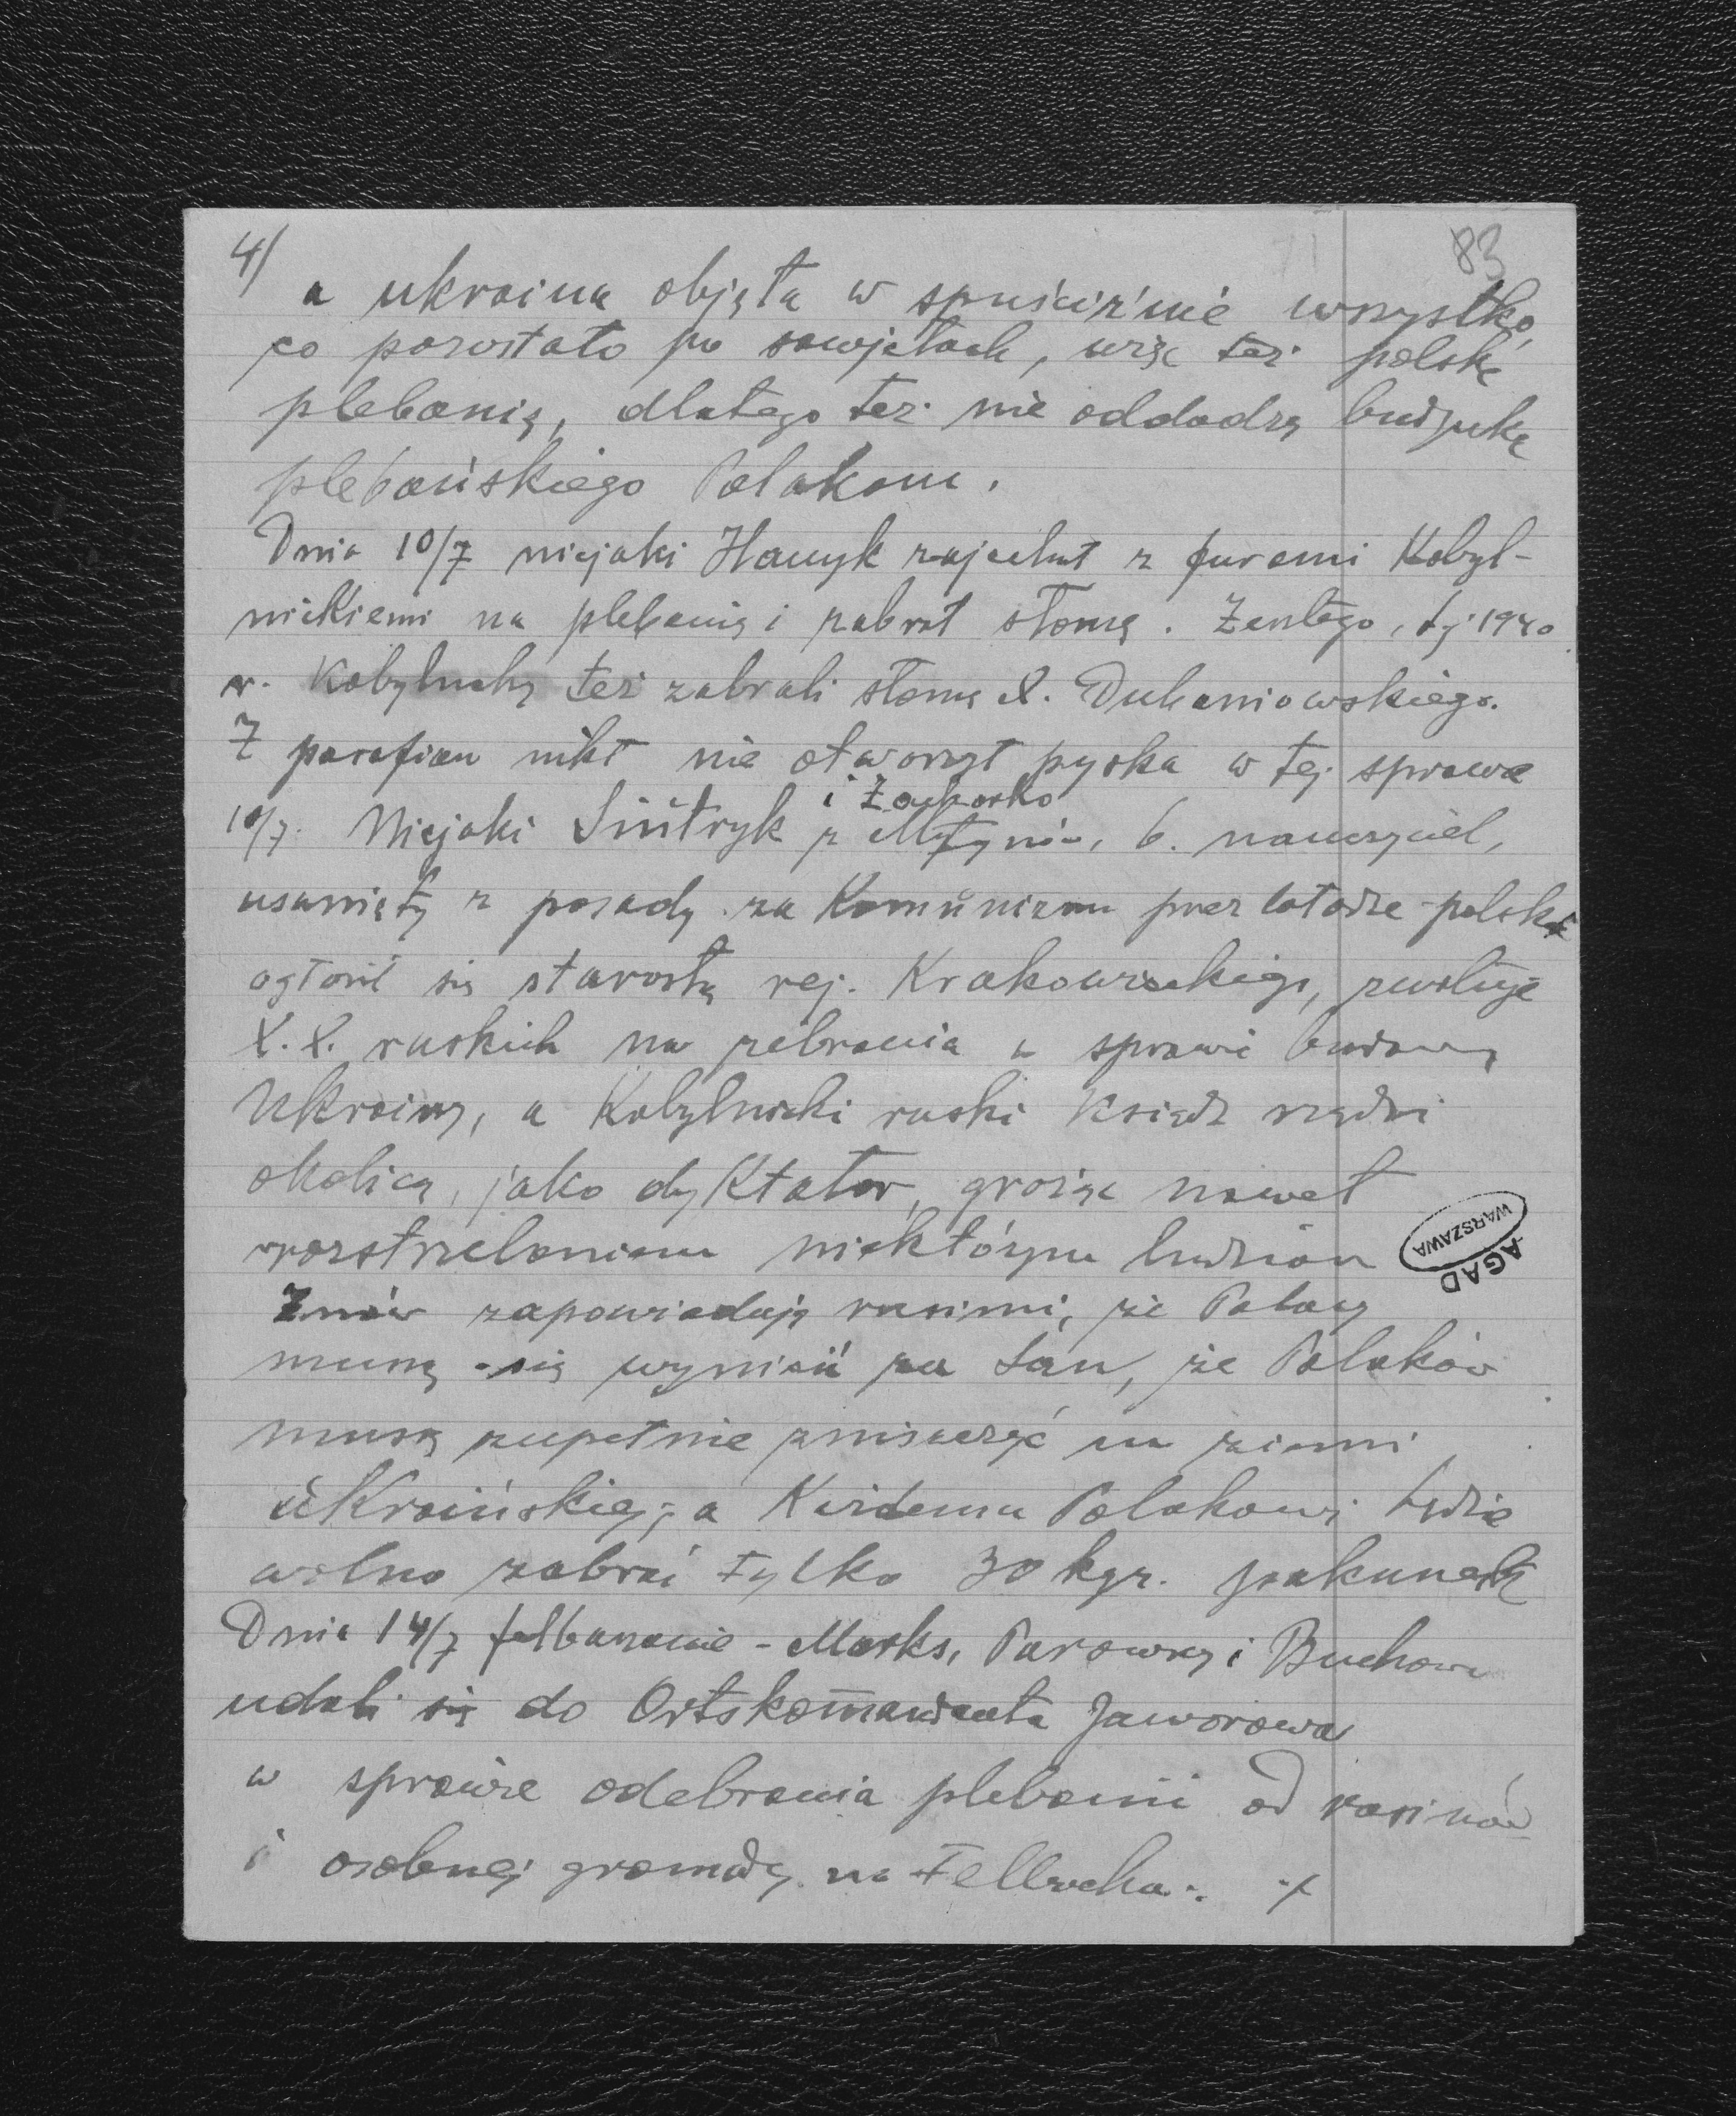 4/
83
a ukraina objęła w spuściźnie wszystko,
co pozostało po sowjetach, więc też polską
plebanię, dlatego też nie oddadzą budynku
plebańskiego Polakom.
Dnia 10/7 niejaki Hawyk zajechał z furami Kobyl-
nickiemi na plebanię i zabrał słomę. Zeszłego, tj. 1940
r. Kobylnicky też zabrali słomę X. Dukaniowskiego.
Z parafian nikt nie otworzył pyska w tej sprawie
i Zacharko
10/7. Niejaki Smitryk z Młynów, b. nauczyciel,
usunięty z posady za Komunizm przez władze polskie
ogłosił się starostą rej. Krakowieckiego, zwołuje
X.X. ruskich na zebrania w sprawie budowy
Ukrainy, a Kobylnicki ruski Ksiądz rządzi
okolicą, jako dyktator, grożąc nawet
rozstrzelaniem niektórym ludziom
Znów zapowiadają rusini, że Polacy
muszą się wynieść za San, że Polaków
muszą zupełnie zniszczyć na ziemi
ukraińskiej, a Każdemu Polakowi będzie
wolno zabrać tylko 30 kgr. pakunek
Dnia 14/7 felbananie - Marks, Parowicz i Buchow
udali się do Ortskommandanta Jaworowa
w sprawie odebrania plebanii od rusinów
i osobnej gromady na Fellbacha.
AGAD
WARSZAWA